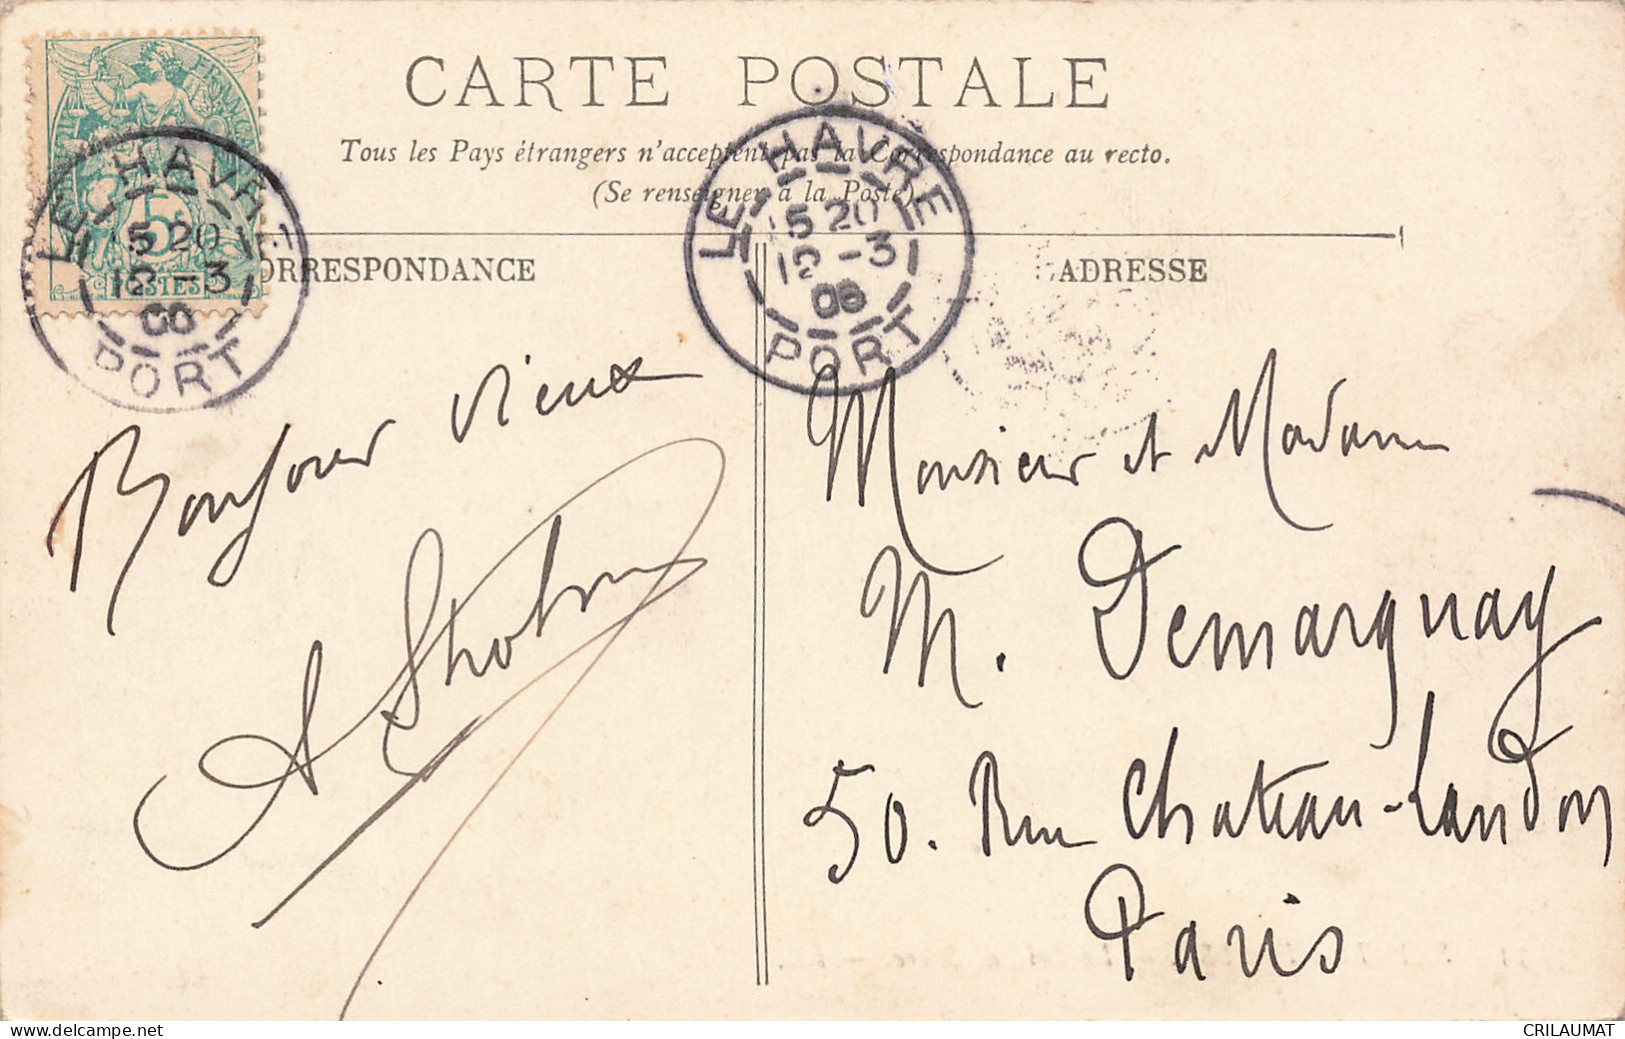 CARTE POSTALE
Tous les Pays étrangers n'acceptent pas la Correspondance au recto.
(Se renseigner à la Poste)
FRANÇAISE
5c
POSTES
LE HAVRE
15 20
12 - 3
PORT
LE HAVRE
15 20
12 - 3
06
PORT
CORRESPONDANCE
ADRESSE
Bonjour vieux
Monsieur et Madame
M. Demarquay
50. Rue Château-Landon
Paris
delcampe.net
CRILAUMAT